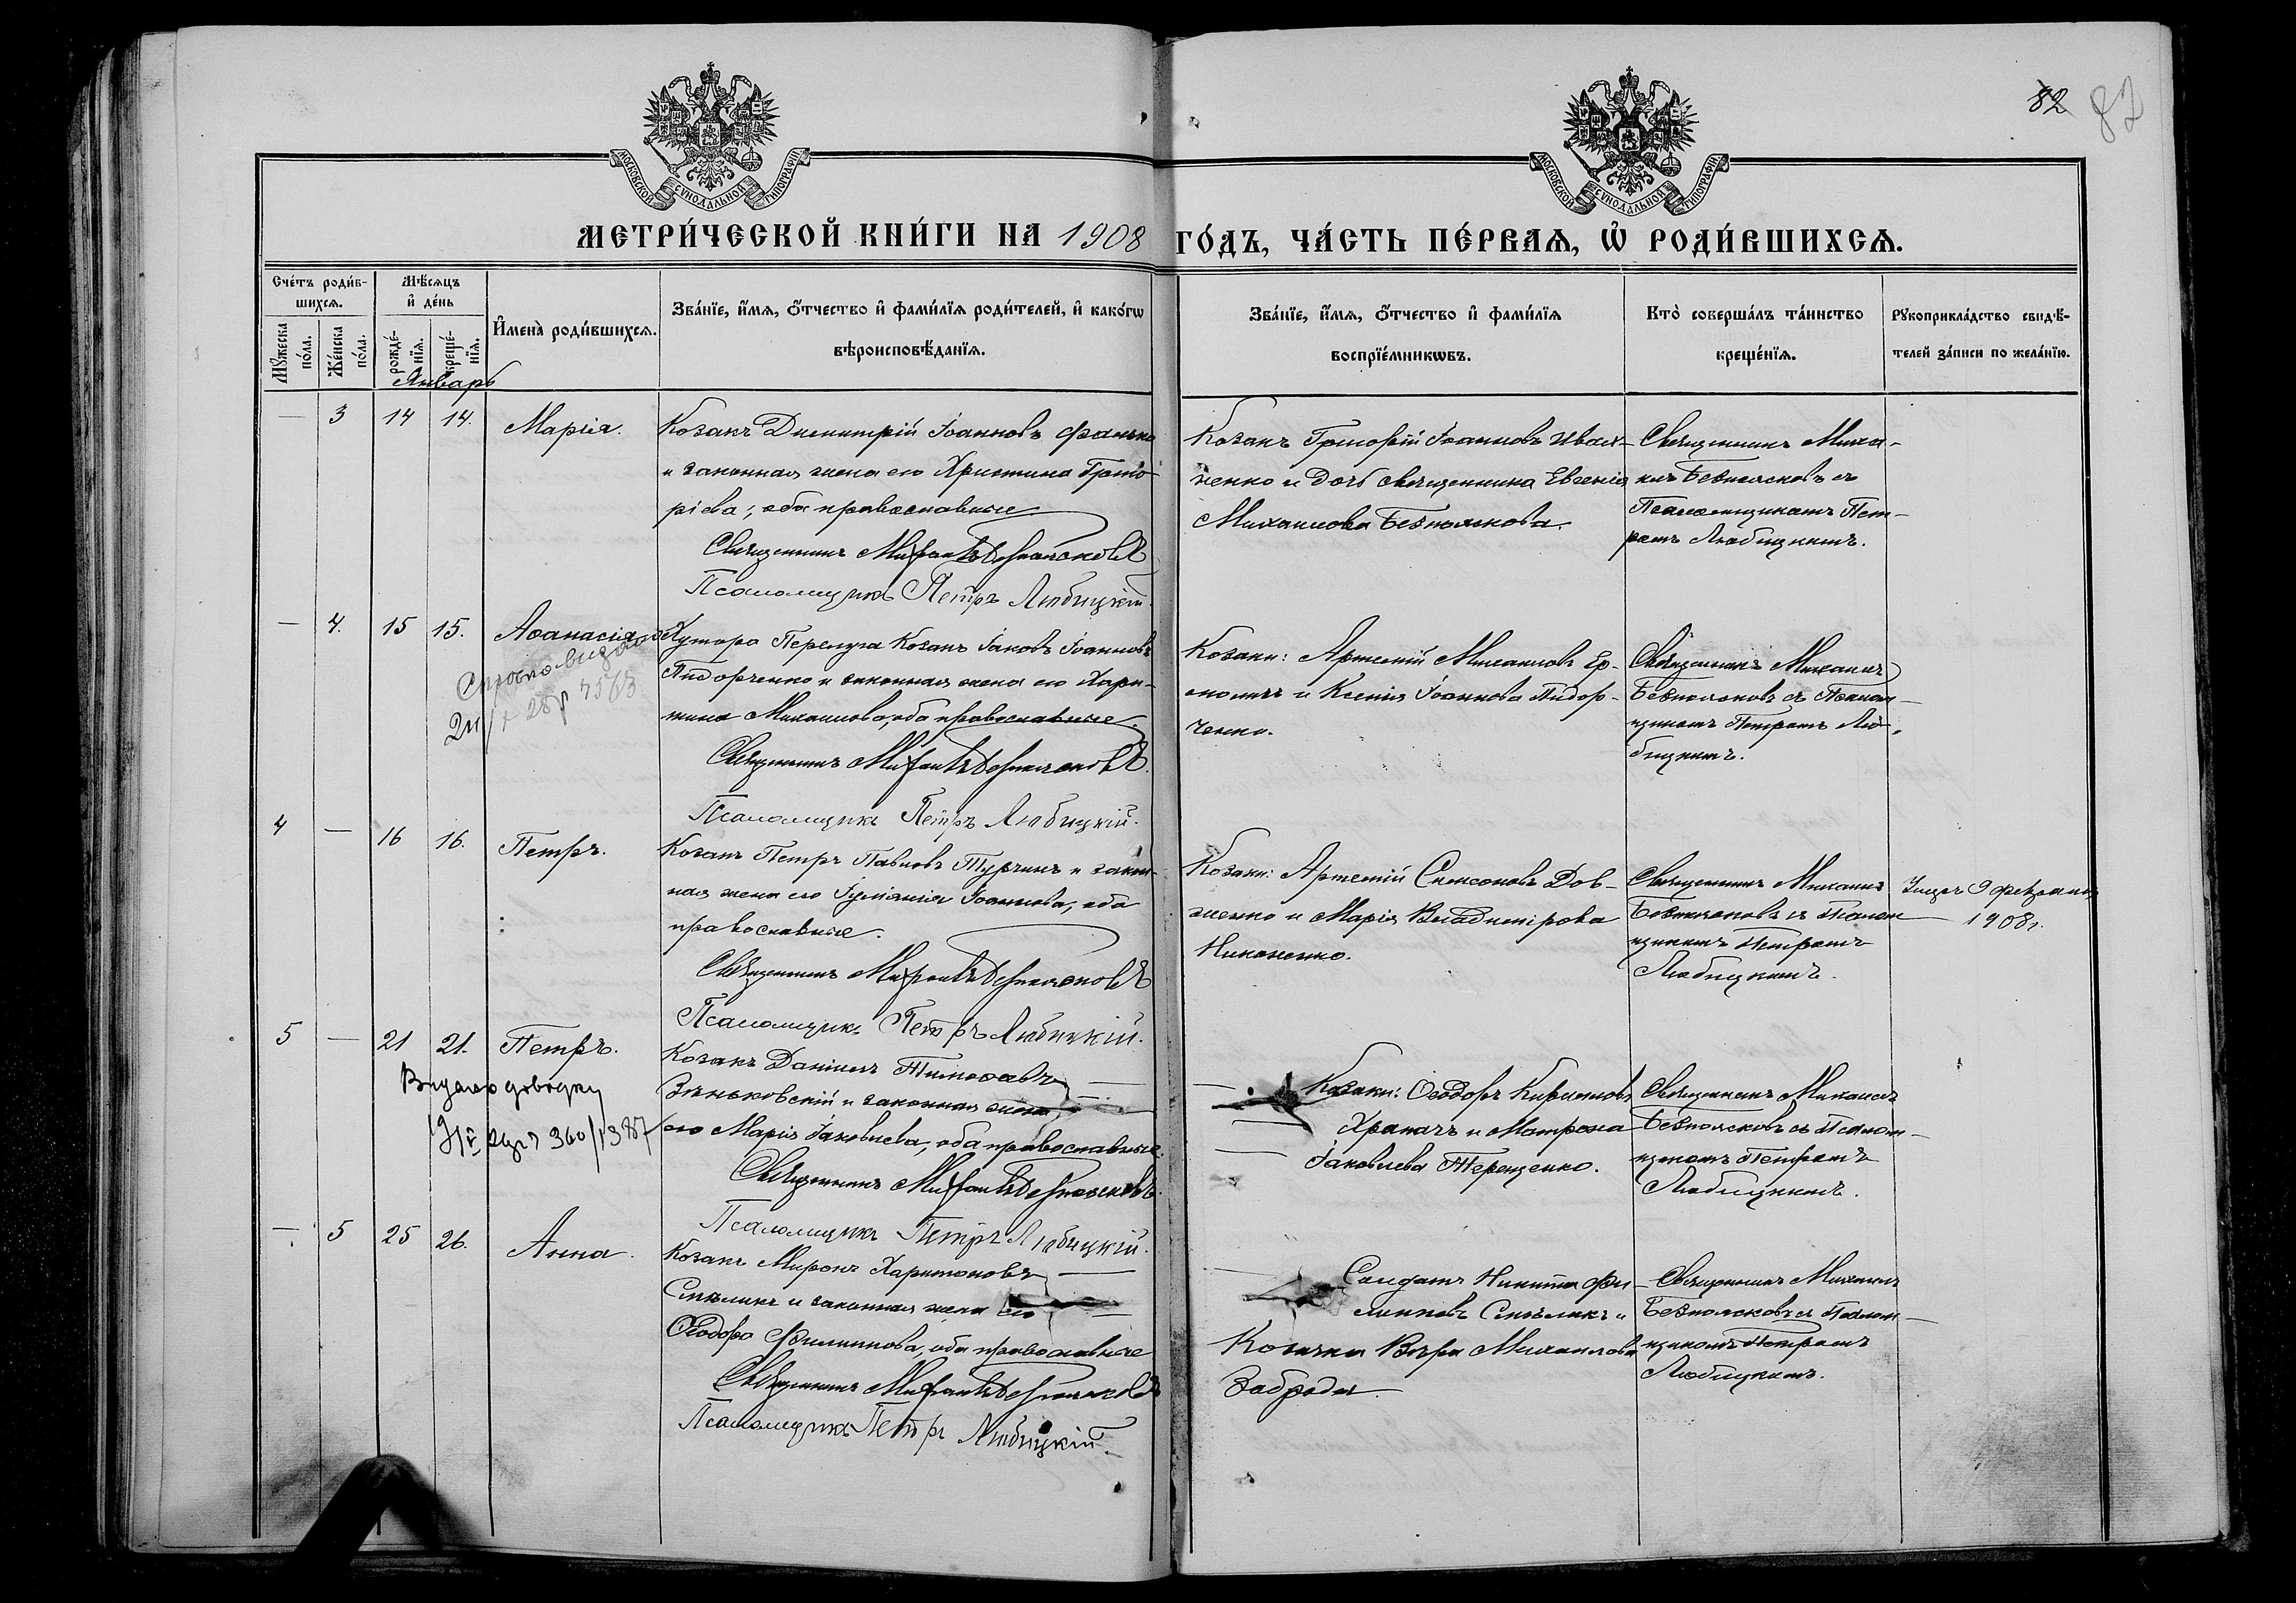 82 82
МОСКОВСКОЙ СѴНОДАЛЬНОЙ ТИПОГРАФІИ
МОСКОВСКОЙ СѴНОДАЛЬНОЙ ТИПОГРАФІИ
МЕТРИ́ЧЕСКОЙ КНИ́ГИ НА 1908 ГО́ДЪ, ЧА́СТЬ ПЕ́РВАѦ, Ѡ҆ РОДИ́ВШИХСѦ.
Сче́тъ роди́в-
шихсѧ.
Мꙋ́жеска по́ла.
Же́нска по́ла.
Мѣ́сѧцъ
и҆ де́нь
рожде́-нїѧ.
креще́-нїѧ.
И҆мена̀ роди́вшихсѧ.
Зва́нїе, и҆́мѧ, ѻ҆́тчество и҆ фами́лїѧ роди́телей, и҆ како́гѡ
вѣроисповѣ́данїѧ.
Зва́нїе, и҆́мѧ, ѻ҆́тчество и҆ фами́лїѧ
воспрїе́мникѡвъ.
Кто̀ соверша́лъ та́инство
креще́нїѧ.
Рꙋкоприкла́дство свидѣ́-
телей за́писи по жела́нїю.
Январь
— 3 14 14. Марія.
Козакъ Димитрій Іоанновъ
и законная жена его Христина Григо-
ріева; оба православные
Священникъ Михаилъ Безпоясковъ
Псаломщикъ Петръ Любицкій.
Козакъ Григорій Іоанновъ Ивах-
ненко и дочь священника Евгенія
Михаилова Безпояскова.
Священникъ Миха-
илъ Безпоясковъ съ
Псаломщикомъ Пет-
ромъ Любицкимъ.
— 4. 15 15. Аѳанасія
Хутора Козакъ Іаковъ Іоанновъ
Пидорченко и законная жена его Хари-
тина Михаилова, оба православные
Священникъ Михаилъ Безпоясковъ.
Псаломщикъ Петръ Любицкій.
Козаки: Артемій Михаиловъ Ер-
молич и Ксенія Іоаннова Пидор-
ченко.
Священникъ Михаилъ
Безпоясковъ съ Псалом-
щикомъ Петромъ Лю-
бицкимъ.
4 — 16 16. Петръ.
Козакъ Петръ Павловъ Турчинъ и закон-
ная жена его Іуліанія Іоаннова, оба
православные.
Священникъ Михаилъ Безпоясковъ
Псаломщикъ Петръ Любицкій.
Козаки: Артемій Симсоновъ Дов-
женко и Марія Владимірова
Никоненко.
Священникъ Михаилъ
Безпоясковъ съ Псалом-
щикомъ Петромъ
Любицкимъ.
Умеръ 9 февраля
1908 г.
5 — 21 21. Петръ.
Козакъ Даніилъ Тимоѳеевъ
Зѣньковскій и законная жена
его Марія Іаковлева, оба православные.
Священникъ Михаилъ Безпоясковъ.
Псаломщикъ Петръ Любицкій.
Козаки: Ѳеодоръ Кирилловъ
Храпачъ и Матрона
Іаковлева Терещенко.
Священникъ Михаилъ
Безпоясковъ съ Псалом-
щикомъ Петромъ
Любицкимъ.
— 5 25 26. Анна.
Козакъ Миронъ Харитоновъ
и законная жена его
Ѳеодора Филиппова, оба православные
Священникъ Михаилъ Безпоясковъ
Псаломщикъ Петръ Любицкій.
Солдатъ Никита Фи-
липповъ и
Козачка Вѣра Михаилова
Заброда.
Священникъ Михаилъ
Безпоясковъ съ Псалом-
щикомъ Петромъ
Любицкимъ.